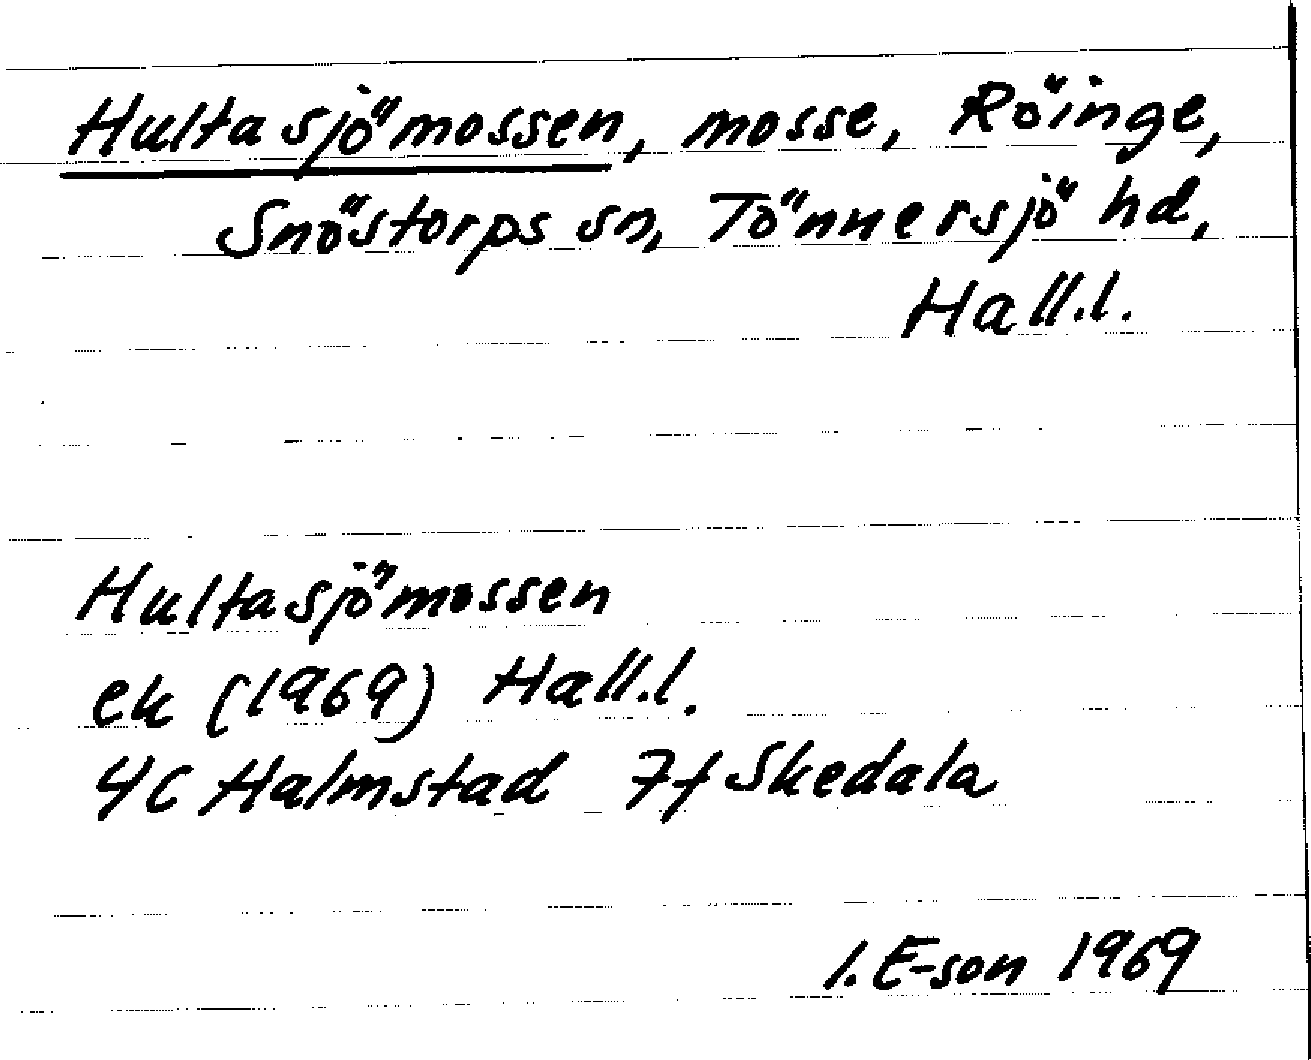 Hultasjömossen, mosse, Röinge,
Snöstorps sn, Tönnersjö hd,
Hall.l.
Hultasjömossen
ek (1969) Hall.l.
4C Halmstad 7f Skedala
I. E-son 1969